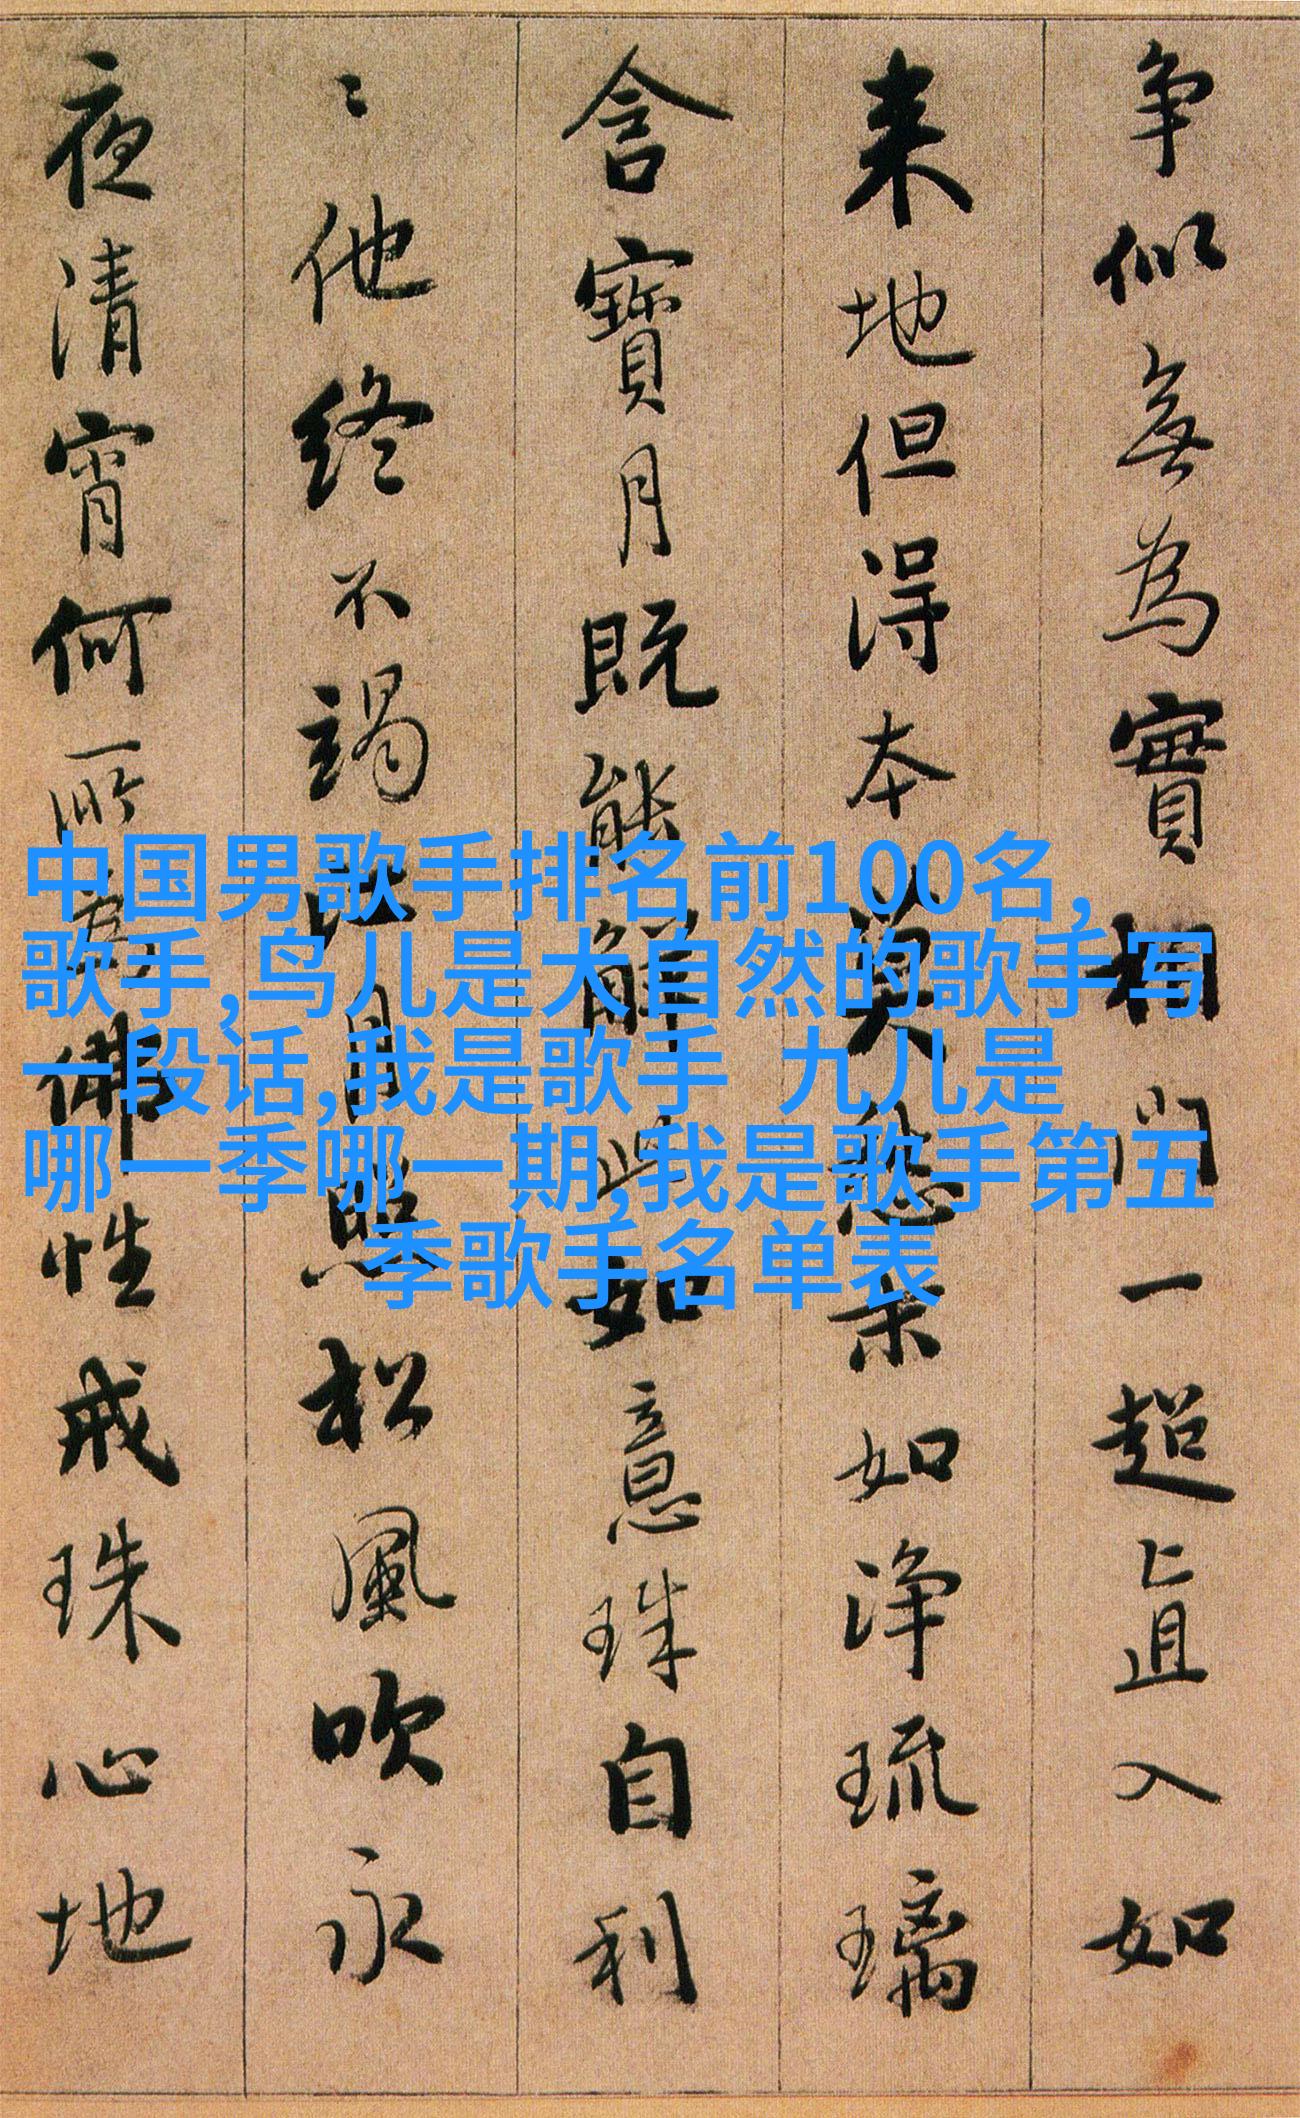 争似無為實相門一超直入如
来地但得本莫愁末如淨琉璃
含寶月既能解此如意珠自利
〻他終不竭江月照松風吹永
夜清宵何所為佛性戒珠心地
中国男歌手排名前100名,
歌手,鸟儿是大自然的歌手写
一段话,我是歌手 九儿是
哪一季哪一期,我是歌手第五
季歌手名单表